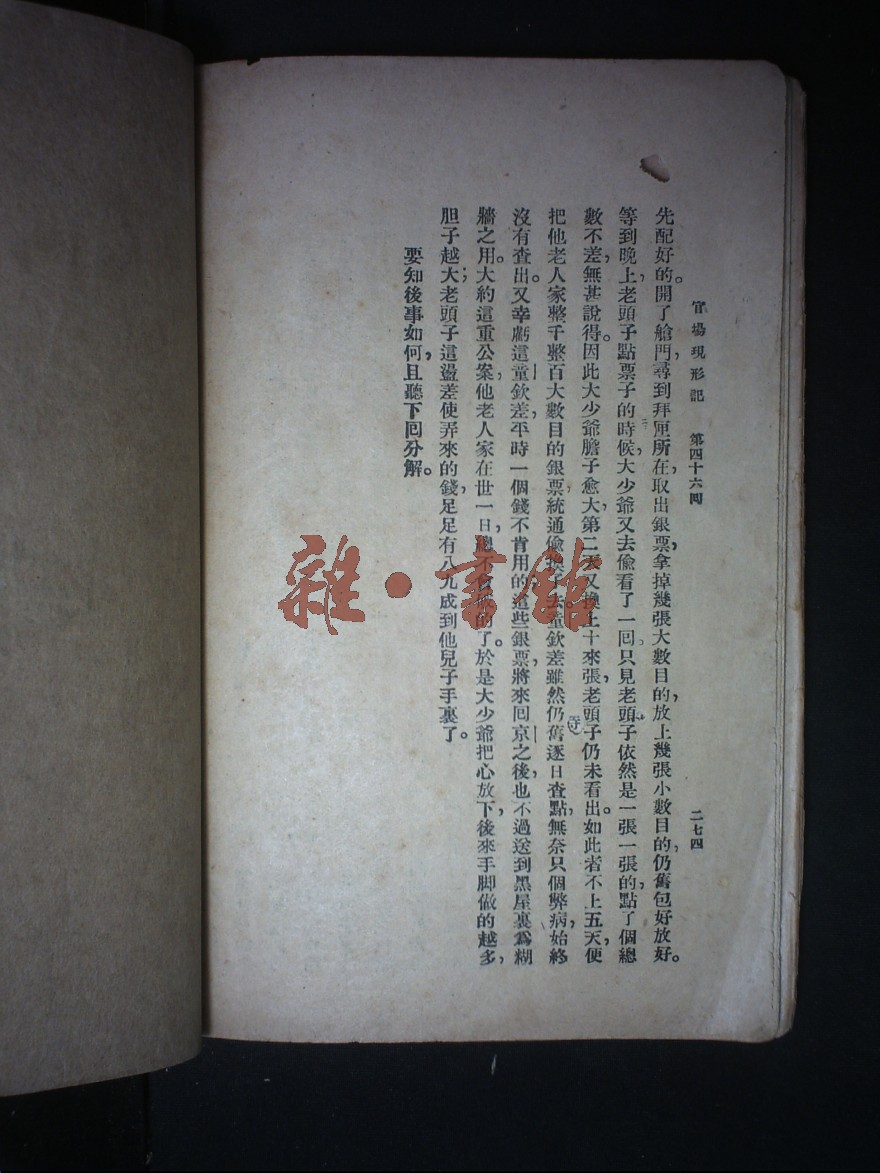 官場現形記　第四十六回　二七四
先配好的。開了艙門，尋到拜匣所在，取出銀票，拿掉幾張大數目的，放上幾張小數目的，仍舊包好放好。
等到晚上，老頭子點票子的時候，大少爺又去偷看了一回。只見老頭子依然是一張一張的，點了個總
數不差，無甚說得。因此大少爺膽子愈大，第二天又換上十來張，老頭子仍未看出。如此者不上五天，便
把他老人家整千整百大數目的銀票，統通偷換了去。童欽差雖然仍舊逐日查點，無奈只個弊病，始終
沒有查出。又幸虧這童欽差，平時一個錢不肯用的，這些銀票，將來回京之後，也不過送到黑屋裏爲糊
牆之用。大約這重公案，他老人家在世一日，總不會的了。於是大少爺把心放下，後來手脚做的越多，
胆子越大；老頭子這盪差使弄來的錢，足足有八九成到他兒子手裏了。
要知後事如何，且聽下回分解。
雜·書館